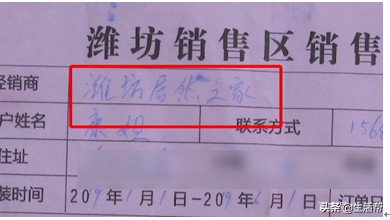 潍坊销售区销售
经销商 潍坊居然之家
户姓名 康姐 联系方式 1568
住址
装时间 2019年1月1日-2019年6月1日 订单
头条@生活帮